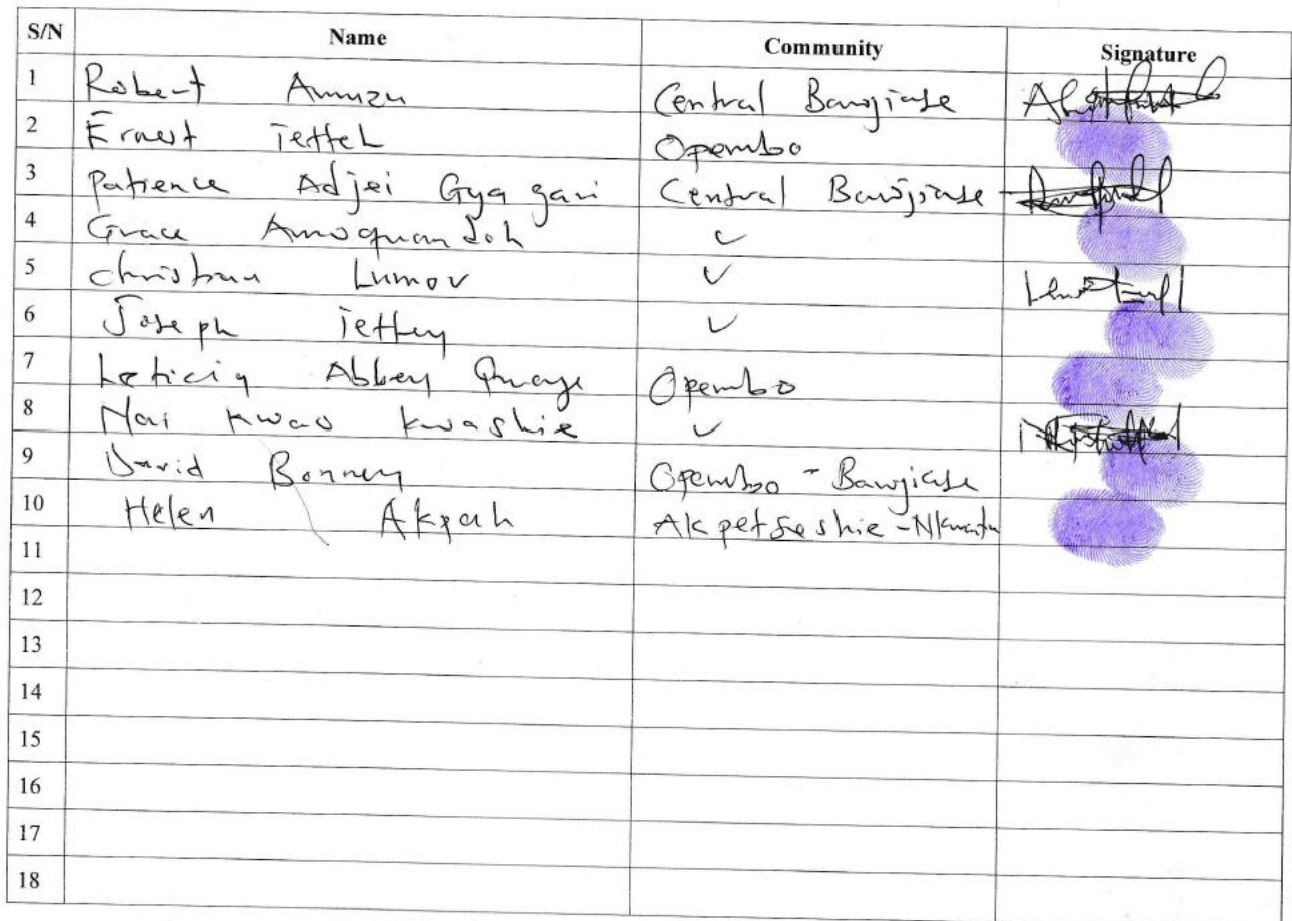 S/N Name Community Signature
1 Robert Amuzu Central Bawjiase
2 Ernest Tetteh Opembo
3 Patience Adjei Gyagyari Central Bawjiase
4 Grace Amoquandoh ✓
5 Christian Lumor ✓
6 Joseph Tettey ✓
7 Leticia Abbey Quaye Opembo
8 Nai Kwao Kwashie ✓
9 David Bonney Opembo - Bawjiase
10 Helen Akpah Akpetseshie - Nkwanta
11
12
13
14
15
16
17
18